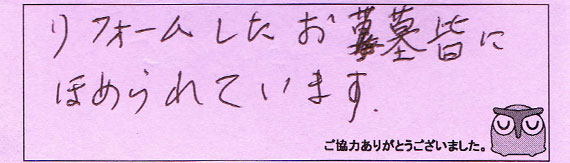 リフォームしたお墓皆に
ほめられています.
ご協力ありがとうございました。